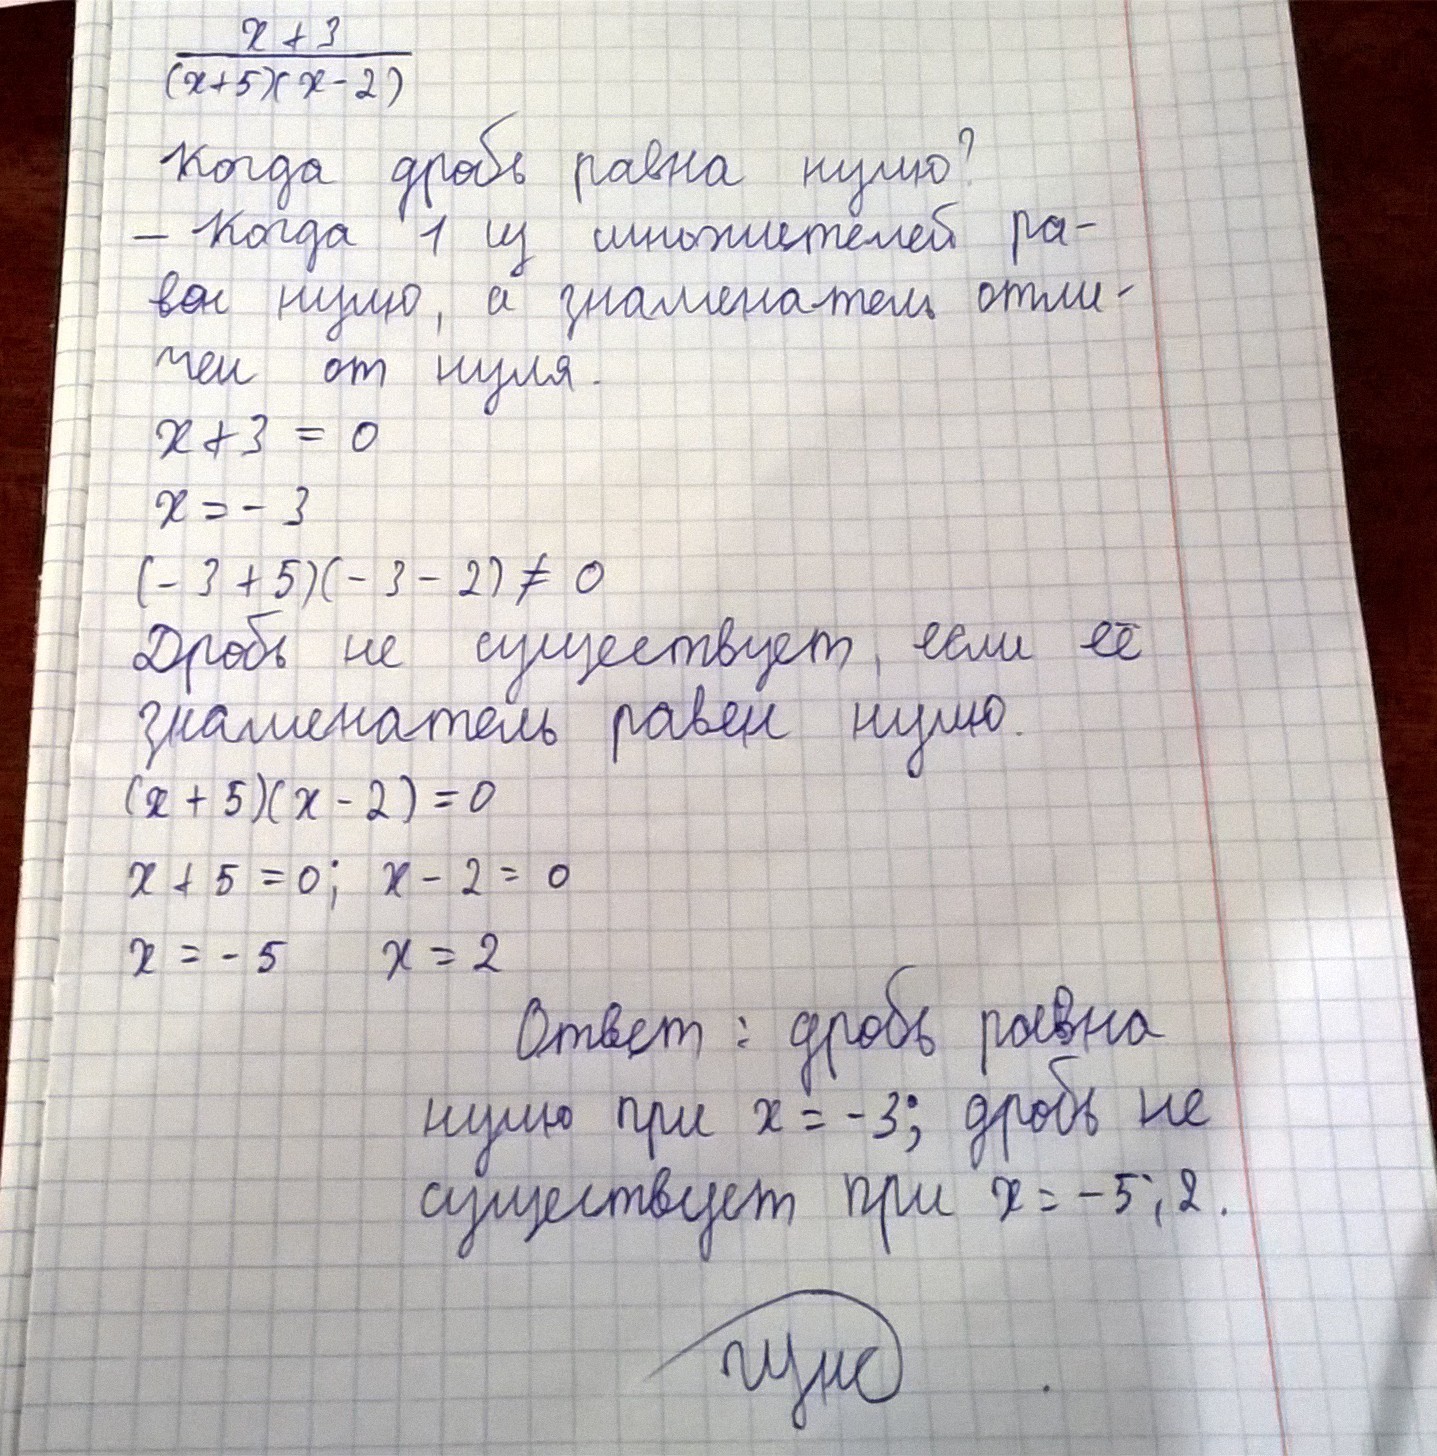 x + 3
(x+5)(x-2)
Когда дробь равна нулю?
- Когда 1 из множителей ра-
вен нулю, а знаменатель отли-
чен от нуля.
x + 3 = 0
x = - 3
(- 3 + 5)(- 3 - 2) ≠ 0
Дробь не существует, если её
знаменатель равен нулю.
(x + 5)(x - 2) = 0
x + 5 = 0; x - 2 = 0
x = - 5 x = 2
Ответ: дробь равна
нулю при x = -3; дробь не
существует при x = -5; 2.